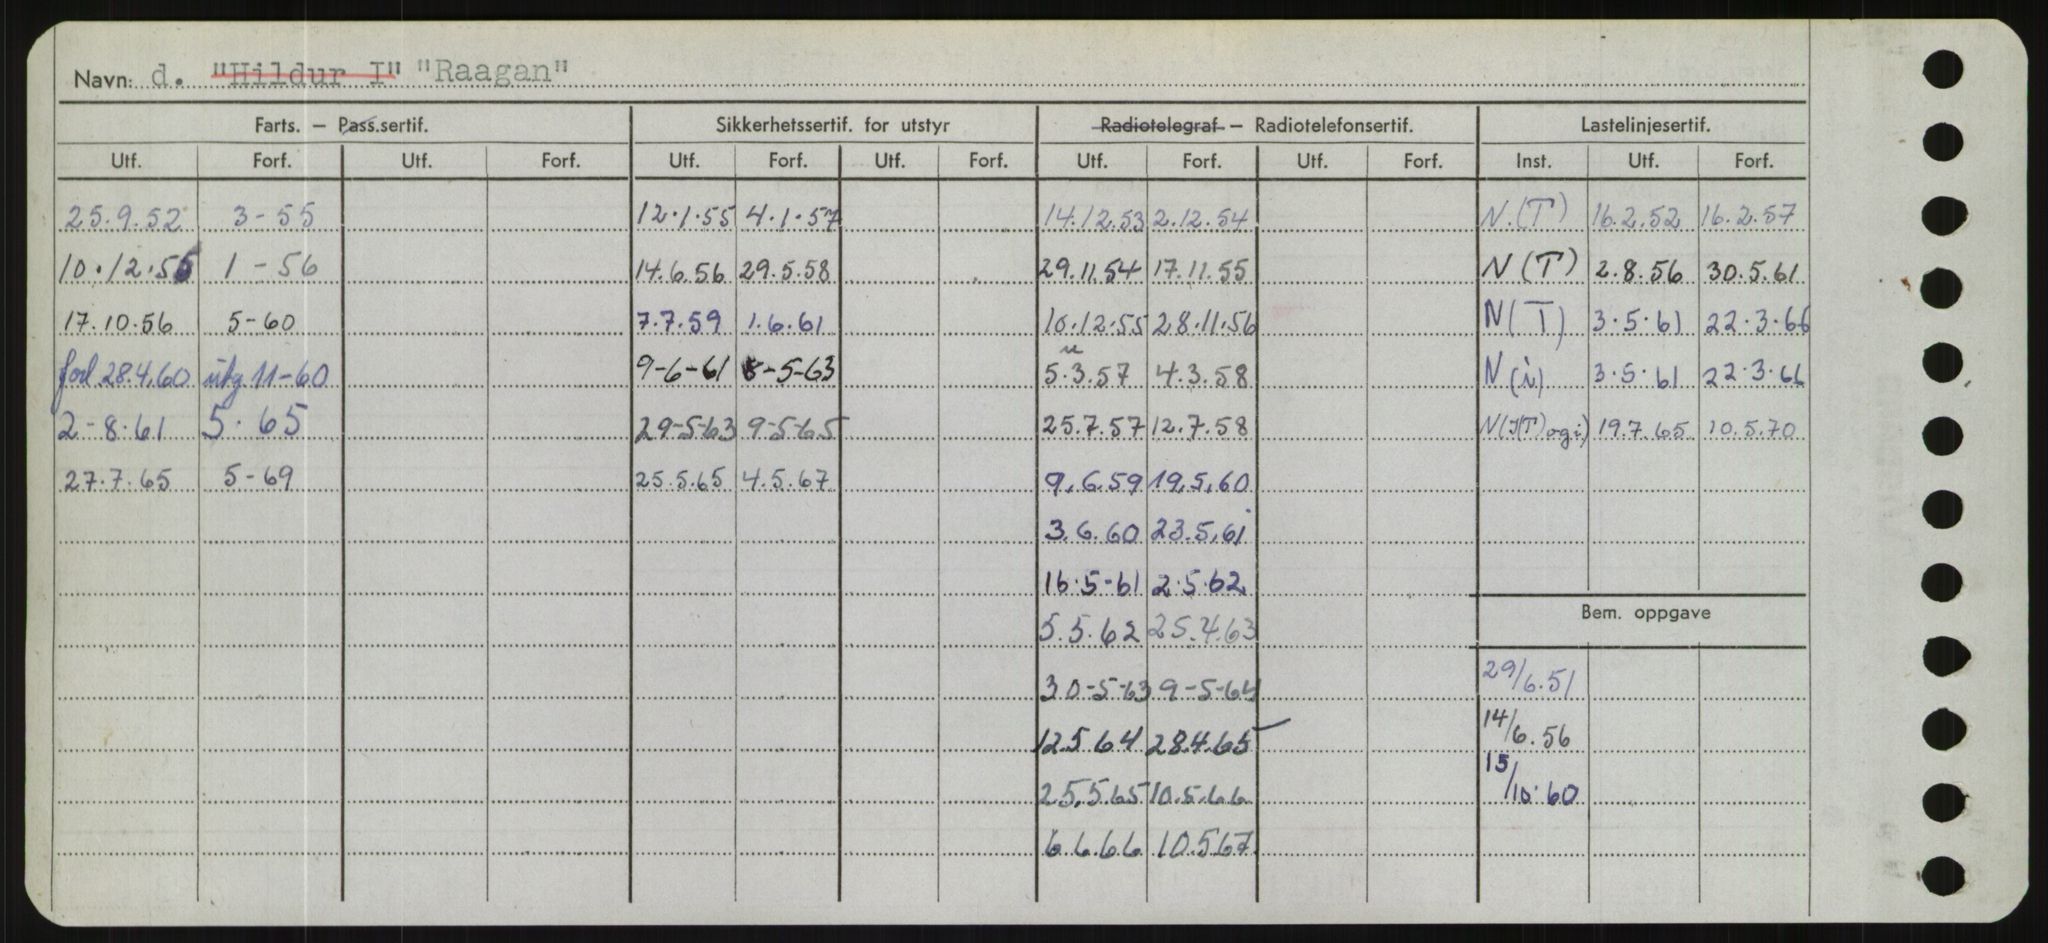 Navn: d. "Hildur I" "Raagan"
Farts. – Pass.sertif. Sikkerhetssertif. for utstyr Radiotelegraf – Radiotelefonsertif. Lastelinjesertif.
Utf. Forf. Utf. Forf. Utf. Forf. Utf. Forf. Utf. Forf. Utf. Forf. Inst. Utf. Forf.
25.9.52 3-55 12.1.55 4.1.57 14.12.53 2.12.54 N.(T) 16.2.52 16.2.57
10.12.55 1-56 14.6.56 29.5.58 29.11.54 17.11.55 N(T) 2.8.56 30.5.61
17.10.56 5-60 7.7.59 1.6.61 10.12.55 28.11.56 N(T) 3.5.61 22.3.66
28.4.60 11-60 9-6-61 8-5-63 5.3.57 4.3.58 N(i) 3.5.61 22.3.66
2-8.61 5.65 29-5-63 9-5-65 25.7.57 12.7.58 N(J(T) og i) 19.7.65 10.5.70
27.7.65 5-69 25.5.65 4.5.67 9.6.59 19.5.60
3.6.60 23.5.61
16.5-61 2.5.62
Bem. oppgave
5.5.62 25.4.63
30-5-63 9-5-64 29/6.51
12.5 64 28.4.65 14/6.56
25.5.65 10.5.66 15/10.60
6.6.66 10.567